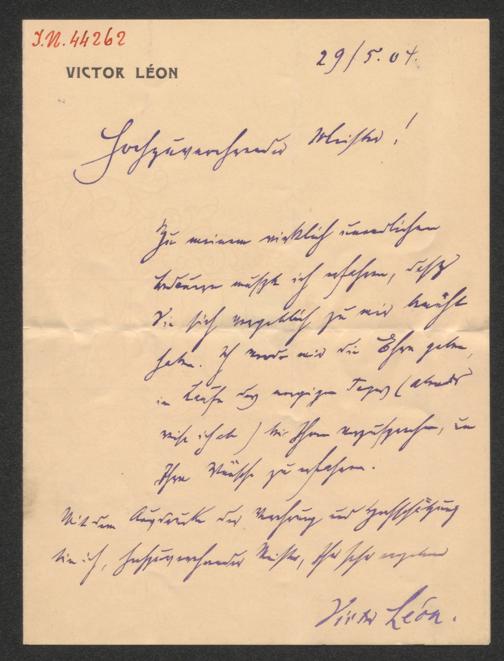 I.N. 44262
VICTOR LÉON
29/5.04.
Hochzuverehrender Meister!
Zu meinem wirklich unendlichen
Bedauern mußte ich erfahren, daß
Sie sich vergeblich zu mir bemüht
haben. Ich werde mir die Ehre geben,
im Laufe des morgigen Tages (abends
reise ich ab) bei Ihnen vorzusprechen, um
Ihre Wünsche zu erfahren.
Mit dem Ausdrucke der Verehrung und Hochschätzung
bin ich, hochzuverehrender Meister, Ihr sehr ergebener
Victor Léon.